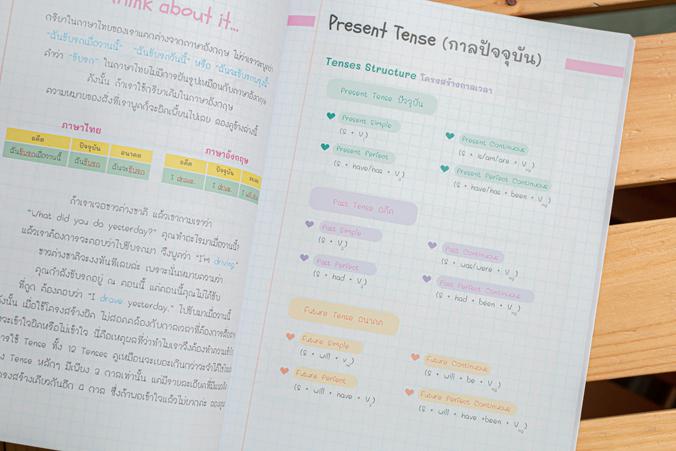 think about it...
กริยาในภาษาไทยของเราแตกต่างจากภาษาอังกฤษ ไม่ว่าเราจะพูดว่า
"ฉันขับรถเมื่อวานนี้" "ฉันขับรถวันนี้" หรือ "ฉันจะขับรถพรุ่งนี้"
คำว่า "ขับรถ" ในภาษาไทยไม่มีการผันรูปเหมือนกับภาษาอังกฤษ
ดังนั้น ถ้าเราใช้กริยาเดิมในภาษาอังกฤษ
ความหมายของสิ่งที่เราพูดก็จะผิดเพี้ยนไปเลย ลองดูข้างล่างนี้
ภาษาไทย
อดีต ปัจจุบัน อนาคต
ฉันขับรถเมื่อวานนี้ ฉันขับรถ ฉันจะขับรถ
ภาษาอังกฤษ
อดีต ปัจจุบัน
I drove. I drive.
ถ้าเราเจอชาวต่างชาติ แล้วเขาถามเราว่า
"What did you do yesterday?" คุณทำอะไรมาเมื่อวานนี้
แล้วเราต้องการจะตอบว่าไปขับรถมา จึงพูดว่า "I'm driving"
ชาวต่างชาติจะงงทันทีเลยล่ะ เพราะนั่นหมายความว่า
คุณกำลังขับรถอยู่ ณ ตอนนี้ แต่ตอนนี้คุณไม่ได้ขับ
ที่ถูก ต้องตอบว่า "I drove yesterday." ไปขับมาเมื่อวานนี้
เมื่อใช้โครงสร้างผิด ไม่สอดคล้องกับกาลเวลาที่ต้องการสื่อสาร
ใช้ Tense ทั้ง 12 Tenses
Tense หลักๆ มีเพียง 3 กาลเท่านั้น
Present Tense (กาลปัจจุบัน)
Tenses Structure โครงสร้างกาลเวลา
Present Tense ปัจจุบัน
Present Simple
(S + V₁)
Present Continuous
(S + is/am/are + V ing)
Present Perfect
(S + have/has + V₃)
Present Perfect Continuous
(S + have/has + been + V ing)
Past Tense อดีต
Past Simple
(S + V₂)
Past Continuous
(S + was/were + V ing)
Past Perfect
(S + had + V₃)
Past Perfect Continuous
(S + had + been + V ing)
Future Tense อนาคต
Future Simple
(S + will + V₁)
Future Continuous
(S + will + be + V ing)
Future Perfect
(S + will + have + V₃)
Future Perfect Continuous
(S + will + have +been + V ing)